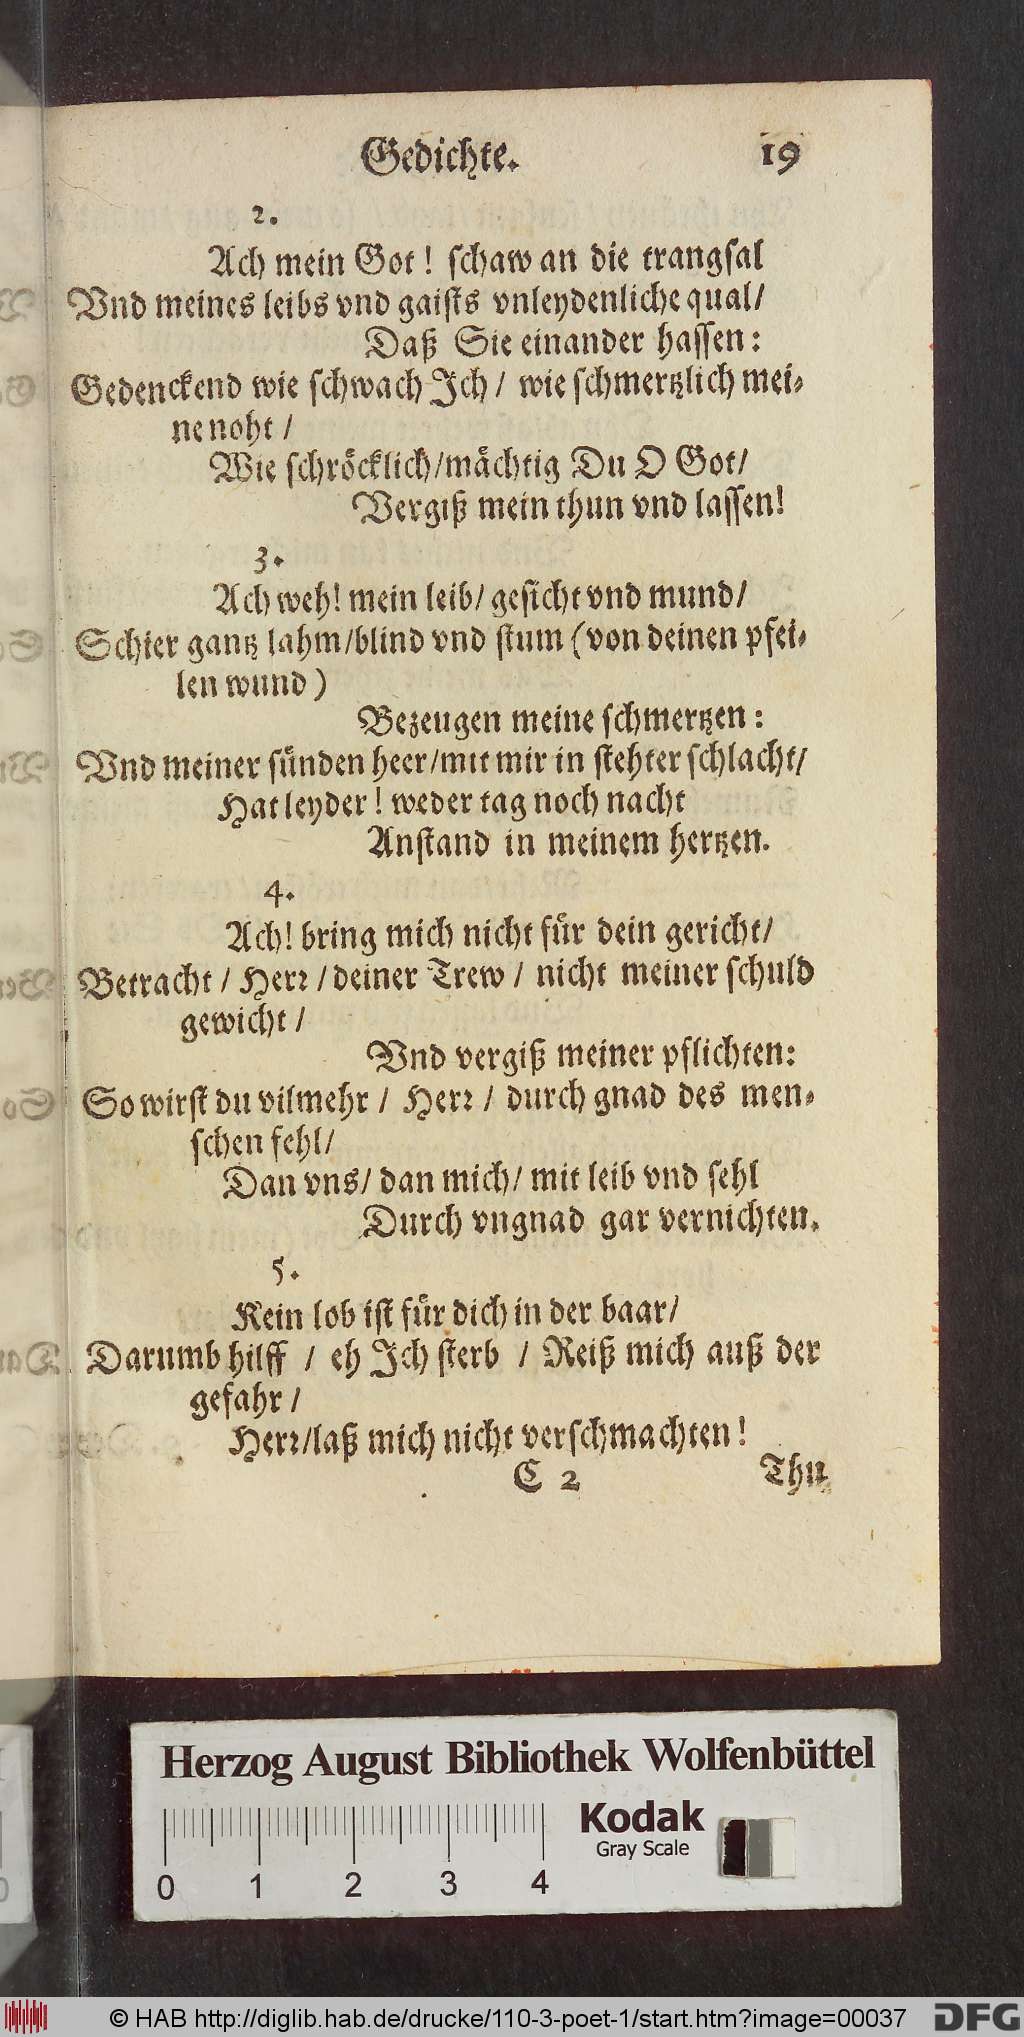 Gedichte. 19
2.
Ach mein Got! schaw an die trangsal
Vnd meines leibs vnd gaists vnleydenliche qual/
Daß Sie einander hassen:
Gedenckend wie schwach Ich/ wie schmertzlich mei-
ne noht/
Wie schröcklich/mächtig Du O Got/
Vergiß mein thun vnd lassen!
3.
Ach weh! mein leib/ gesicht vnd mund/
Schier gantz lahm/blind vnd stum (von deinen pfei-
len wund)
Bezeugen meine schmertzen:
Vnd meiner sünden heer/mit mir in stehter schlacht/
Hat leyder! weder tag noch nacht
Anstand in meinem hertzen.
4.
Ach! bring mich nicht für dein gericht/
Betracht/ Herr/deiner Trew/ nicht meiner schuld
gewicht/
Vnd vergiß meiner pflichten:
So wirst du vilmehr/ Herr/ durch gnad des men-
schen fehl/
Dan vns/ dan mich/ mit leib vnd sehl
Durch vngnad gar vernichten.
5.
Kein lob ist für dich in der baar/
Darumb hilff / eh Ich sterb / Reiß mich auß der
gefahr/
Herr/laß mich nicht verschmachten!
C 2 Thu
Herzog August Bibliothek Wolfenbüttel
Kodak
Gray Scale
0 1 2 3 4
© HAB http://diglib.hab.de/drucke/110-3-poet-1/start.htm?image=00037 DFG